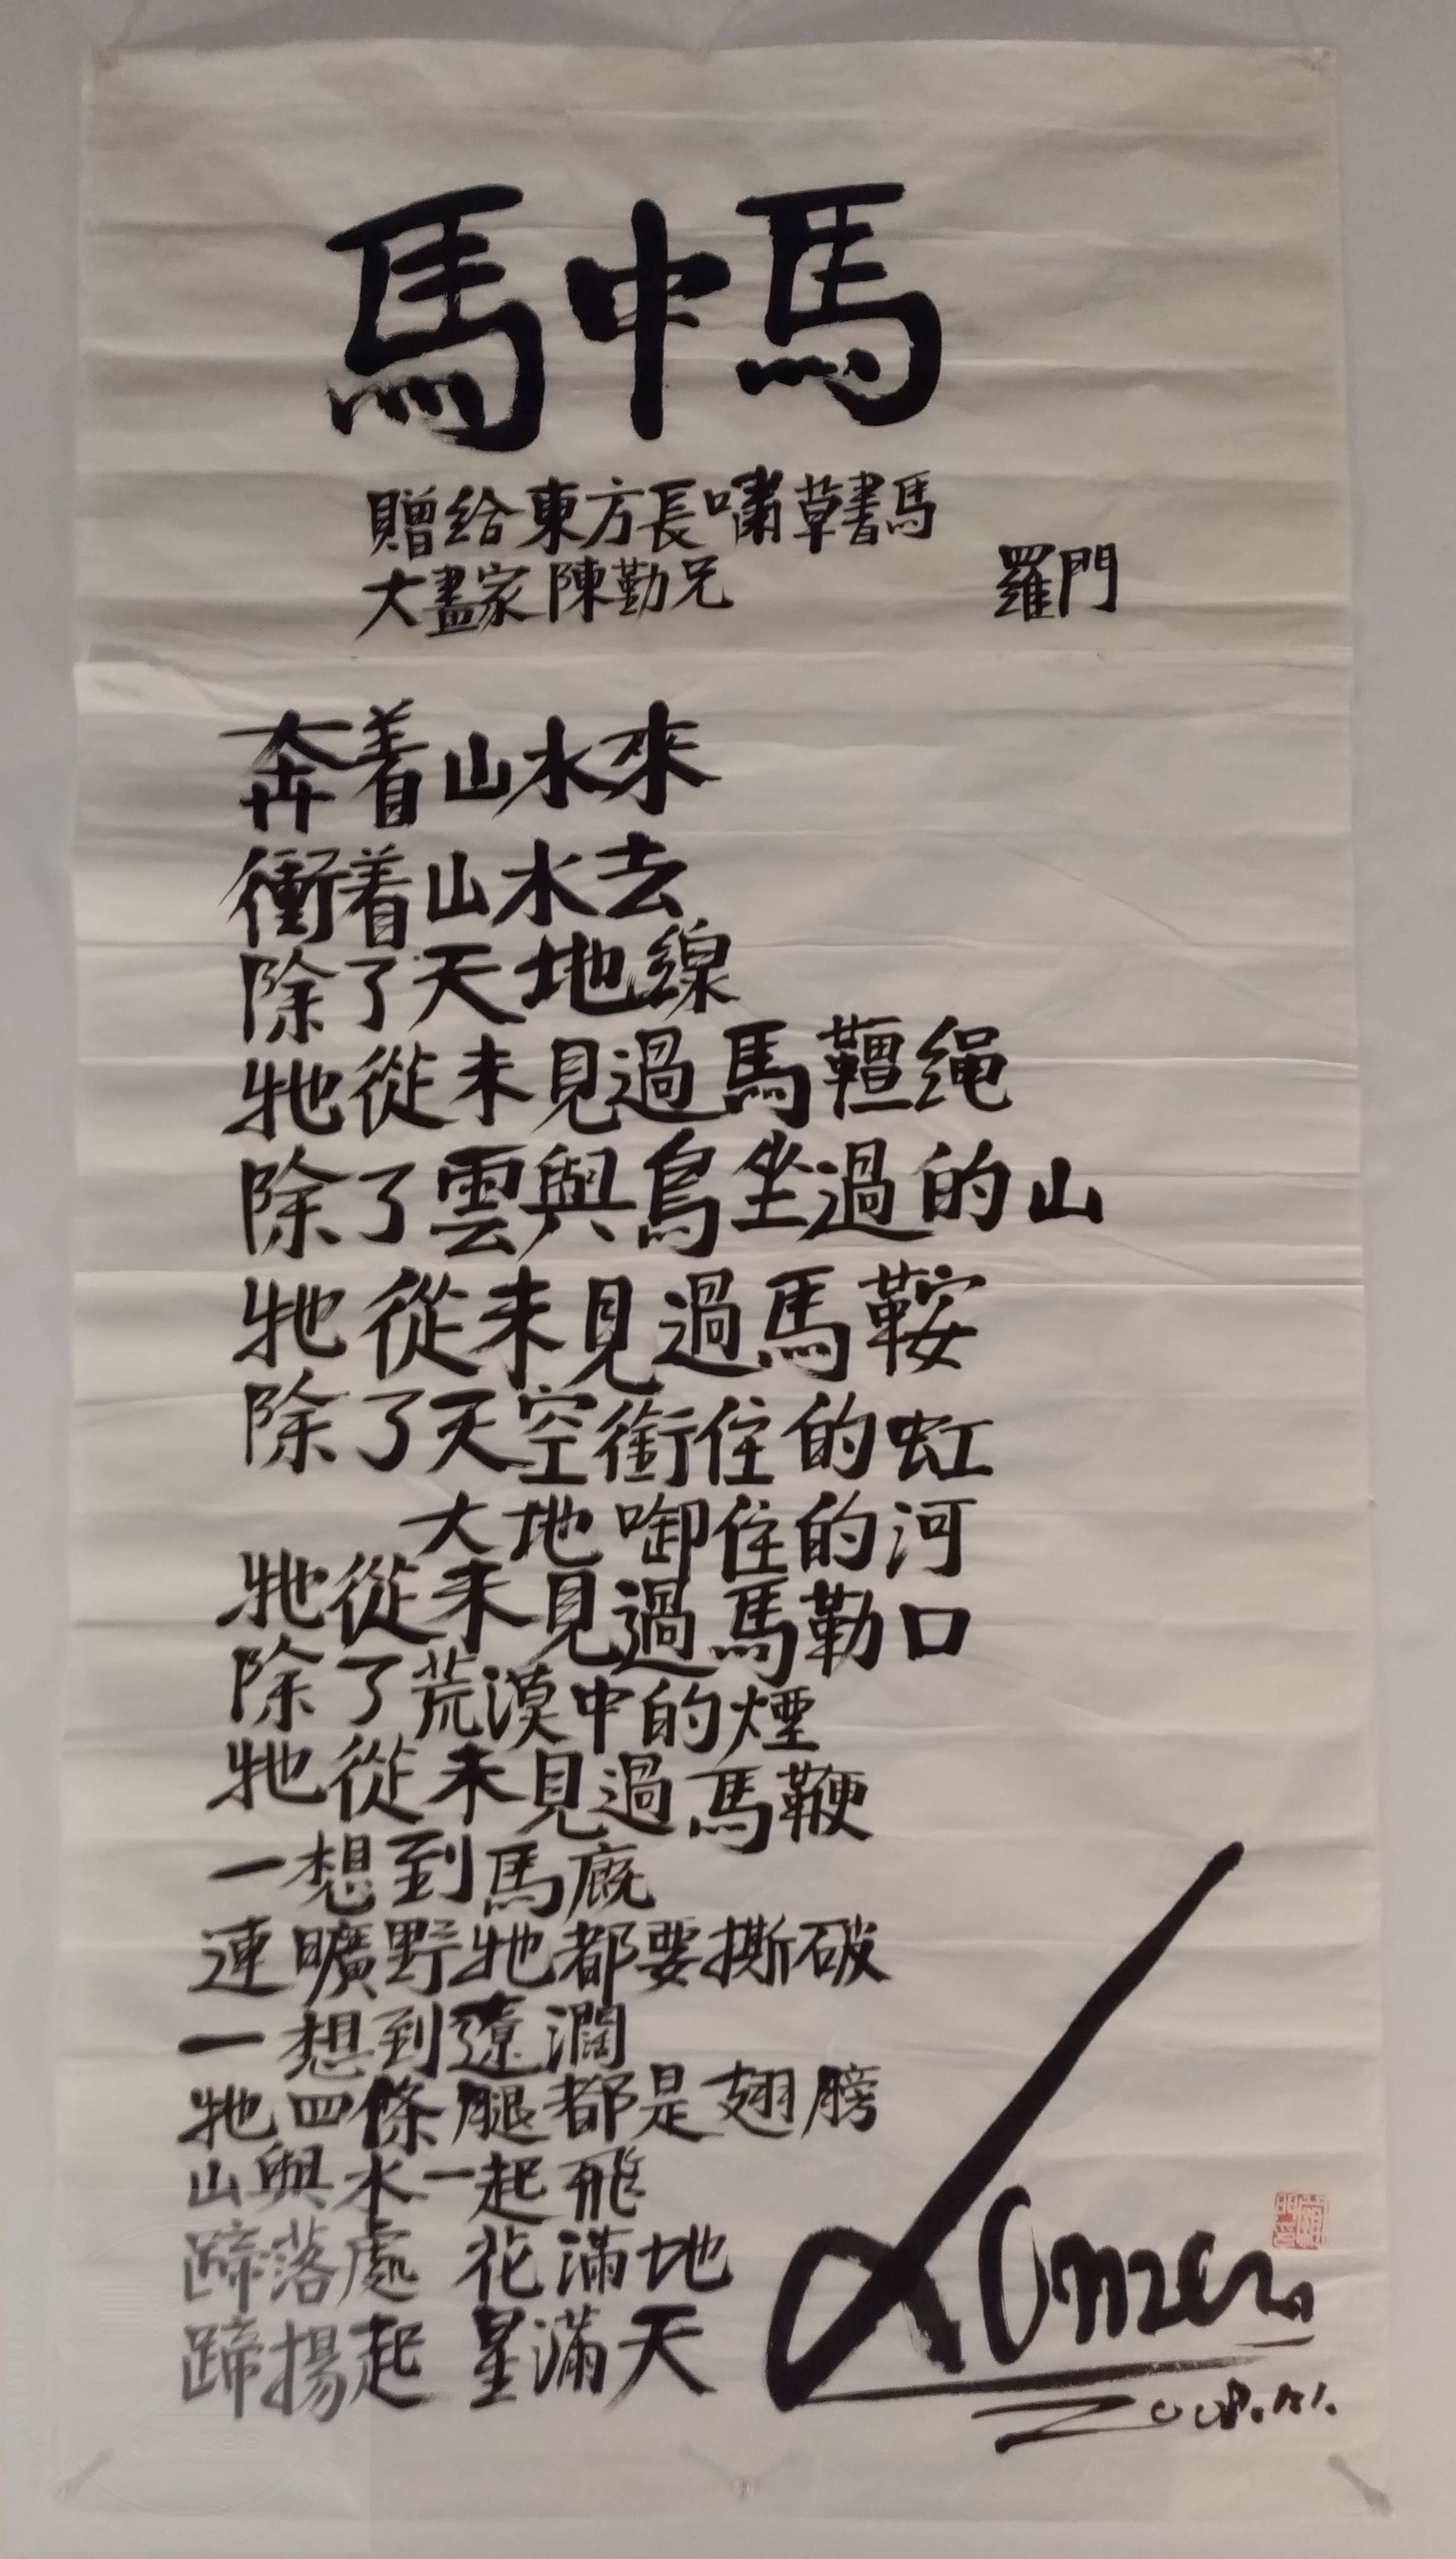 馬中馬
贈給東方長嘯草書馬
大畫家陳勤兄
羅門
奔着山水來
衝着山水去
除了天地線
牠從未見過馬韁绳
除了雲與鳥坐過的山
牠從未見過馬鞍
除了天空銜住的虹
大地啣住的河
牠從未見過馬勒口
除了荒漠中的煙
牠從未見過馬鞭
一想到馬廐
連曠野牠都要撕破
一想到遼濶
牠四條腿都是翅膀
山與水一起飛
蹄落處 花滿地
蹄揚起 星滿天
Lomen
2008.